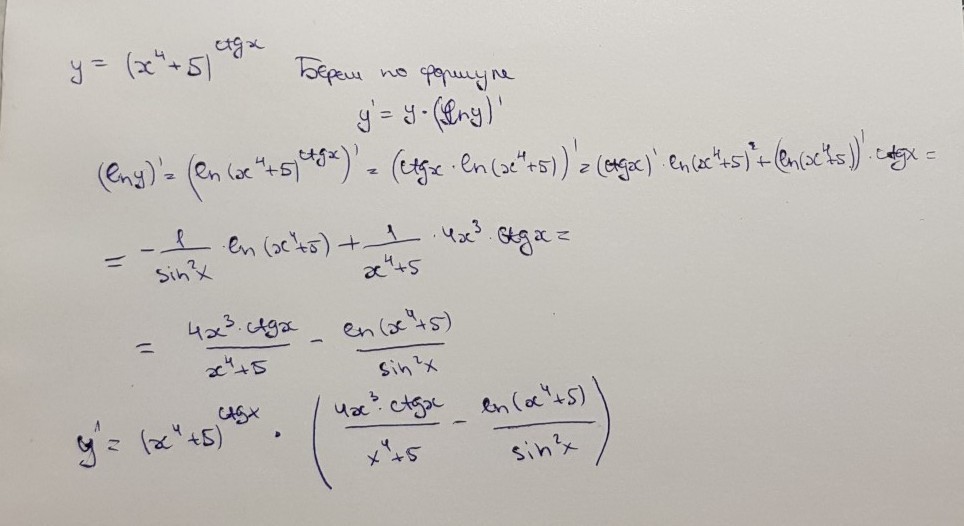 y = (x⁴+5)^ctgx Берем по формуле
y' = y·(lny)'
(lny)' = (ln(x⁴+5)^ctgx)' = (ctgx·ln(x⁴+5))' = (ctgx)'·ln(x⁴+5)² + (ln(x⁴+5))'·ctgx =
= -1/sin²x · ln(x⁴+5) + 1/(x⁴+5) · 4x³·ctgx =
= (4x³·ctgx)/(x⁴+5) - ln(x⁴+5)/sin²x
y' = (x⁴+5)^ctgx · ((4x³·ctgx)/(x⁴+5) - ln(x⁴+5)/sin²x)